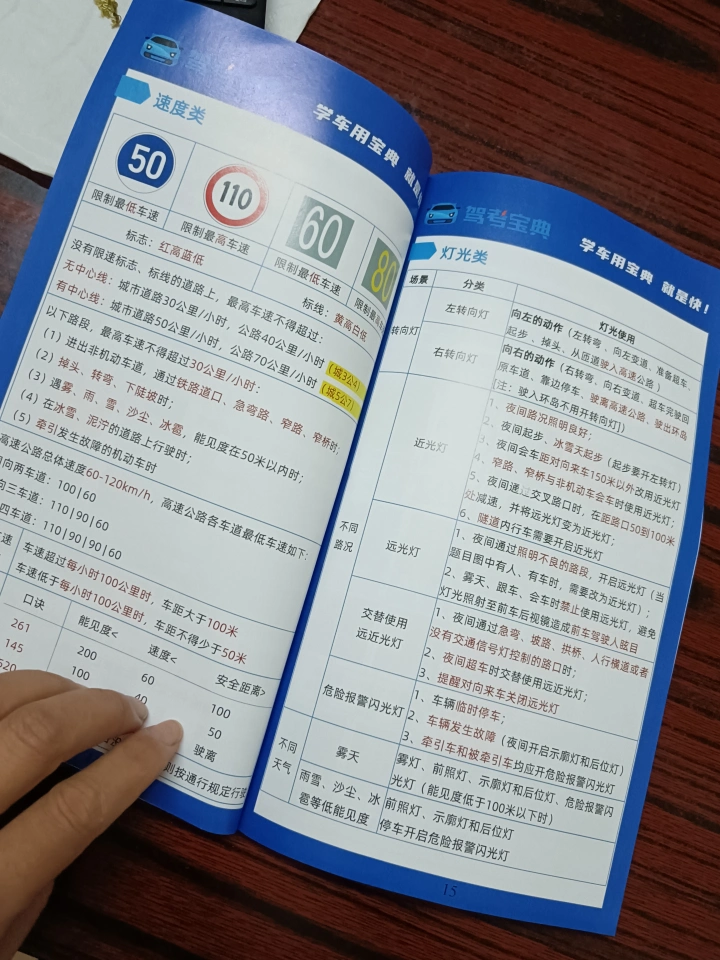 学车用宝典 就是
速度类
50
110
60
80
限制最低车速
限制最高车速
限制最低车速
限制最高
标志：红高蓝低
标线：黄高白低
没有限速标志、标线的道路上，最高车速不得超过：
无中心线：城市道路30公里/小时，公路40公里/小时（城3公4）
有中心线：城市道路50公里/小时，公路70公里/小时（城5公7）
以下路段，最高车速不得超过30公里/小时：
（1）进出非机动车道，通过铁路道口、急弯路、窄路、窄桥时；
（2）掉头、转弯、下陡坡时；
（3）遇雾、雨、雪、沙尘、冰雹，能见度在50米以内时；
（4）在冰雪、泥泞的道路上行驶时；
（5）牵引发生故障的机动车时
高速公路总体速度60-120km/h，高速公路各车道最低车速如下：
向两车道：100|60
向三车道：110|90|60
四车道：110|90|90|60
车速超过每小时100公里时，车距大于100米
车速低于每小时100公里时，车距不得少于50米
口诀
能见度<
速度<
安全距离>
261
200
60
100
145
100
40
50
520
驶离
则按通行规定行驶
驾考宝典
学车用宝典 就是快！
灯光类
场景
分类
灯光使用
转向灯
左转向灯
向左的动作（左转弯、向左变道、准备超车、
起步、掉头、从匝道驶入高速公路）
右转向灯
向右的动作（右转弯、向右变道、超车完驶回
原车道、靠边停车、驶离高速公路、驶出环岛
[注：驶入环岛不用开转向灯]）
不同
路况
近光灯
1、夜间路况照明良好；
2、夜间起步、冰雪天起步（起步要开左转灯）
3、夜间会车距对向来车150米以外改用近光灯
4、窄路、窄桥与非机动车会车时使用近光灯；
5、夜间通过交叉路口时，在距路口50到100米
处减速，并将远光灯变为近光灯；
6、隧道内行车需要开启近光灯
远光灯
1、夜间通过照明不良的路段，开启远光灯（当
题目图中有人、有车时，需要改为近光灯）；
2、雾天、跟车、会车时禁止使用远光灯，避免
灯光照射至前车后视镜造成前车驾驶人眩目
交替使用
远近光灯
1、夜间通过急弯、坡路、拱桥、人行横道或者
没有交通信号灯控制的路口时；
2、夜间超车时交替使用远近光灯；
3、提醒对向来车关闭远光灯
危险报警闪光灯
1、车辆临时停车；
2、车辆发生故障（夜间开启示廓灯和后位灯）
3、牵引车和被牵引车均应开危险报警闪光灯
不同
天气
雾天
雾灯、前照灯、示廓灯和后位灯、危险报警闪
光灯（能见度低于100米以下时）
雨雪、沙尘、冰
雹等低能见度
前照灯、示廓灯和后位灯
停车开启危险报警闪光灯
15